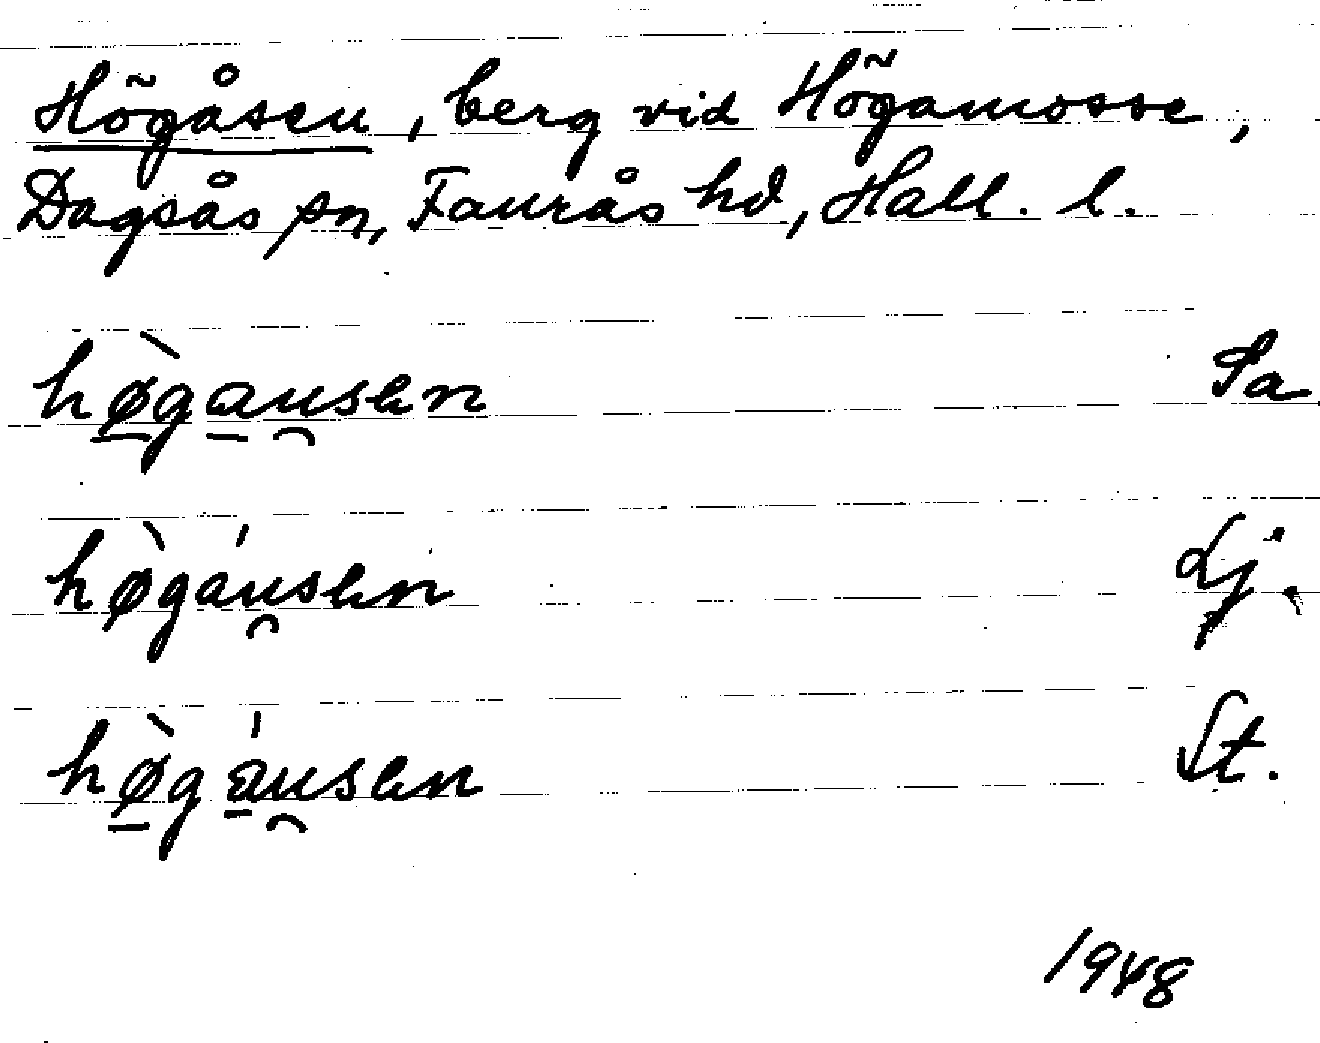 Högåsen, berg vid Högamosse,
Dagsås sn, Faurås hd, Hall. l.
hø̀gau̯sen Sa
hø̀gáu̯sen Lj.
hø̀gáu̯sen St.
1948